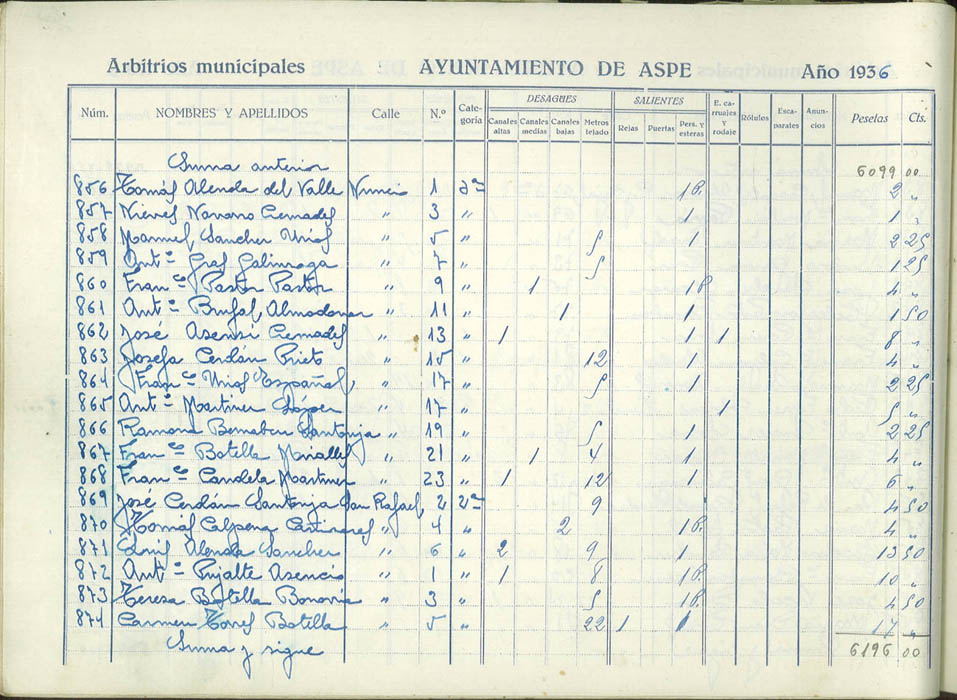 Arbitrios municipales AYUNTAMIENTO DE ASPE Año 1936
Núm. NOMBRES Y APELLIDOS Calle N.º Categoría DESAGÜES Canales altas Canales medias Canales bajas Metros tejado SALIENTES Rejas Puertas Pers. y esteras E. carruajes y rodaje Rótulos Escaparates Anuncios Pesetas Cts.
Suma anterior 6099 00
856 Tomás Alenda del Valle Nuncio 1 2ª 1 P. 2 "
857 Nieves Navarro Cremades " 3 " 1 1 "
858 Manuel Sanchez Urios " 5 " 5 1 2 25
859 Antº Gras Galinsoga " 7 " 5 1 25
860 Francº Pastor Pastor " 9 " 1 1 P 4 "
861 Antº Brufal Almodovar " 11 " 1 1 1 50
862 José Asensi Cremades " 13 " 1 1 1 8 "
863 Josefa Cerdán Prieto " 15 " 12 1 4 "
864 Francº Urios Español " 17 " 5 1 2 25
865 Antº Martinez López " 17 " 1 5 "
866 Ramona Bernabeu Santonja " 19 " 5 1 2 25
867 Francº Botella Miralles " 21 " 1 4 1 4 "
868 Francº Candela Martinez " 23 " 1 12 1 6 "
869 José Cerdán Santonja San Rafael 2 2ª 9 4 50
870 Tomás Calpena " 4 " 2 1 P. 4 "
871 Luis Alenda Sanchez " 6 " 2 9 1 13 50
872 Antº Pujalte Asencio " 1 " 1 8 1 P. 10 "
873 Teresa Botella " 3 " 5 1 P. 4 50
874 Carmen Torres Botella " 5 " 22 1 1 17 "
Suma y sigue 6196 00